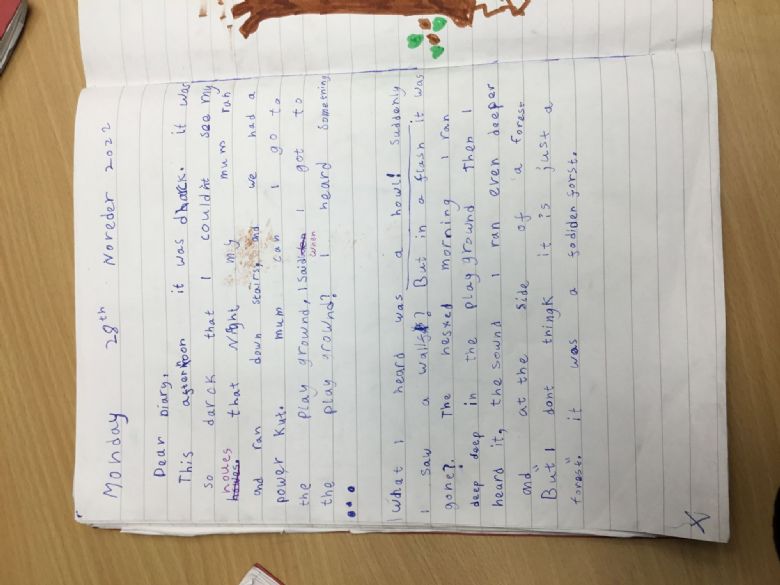 Monday 28th Noreder 2022
Dear Diary,
This afternoon it was dharck. it was
so darck that I couldnt see my
houes that Night my mum ran
and ran down stairs, and we had a
power kut. mum can I go to
the play grownd, I said when I got to
the play grownd? I heard something
...
What I heard was a howl! Suddenly
I saw a wallf? But in a flash it was
gone?. The nexed morning I ran
deep deep in the playgrownd then I
heard it, the sownd I ran even deeper
and at the side of a forest
But I dont thingk it is just a
"forest" it was a fodiden forst.
X